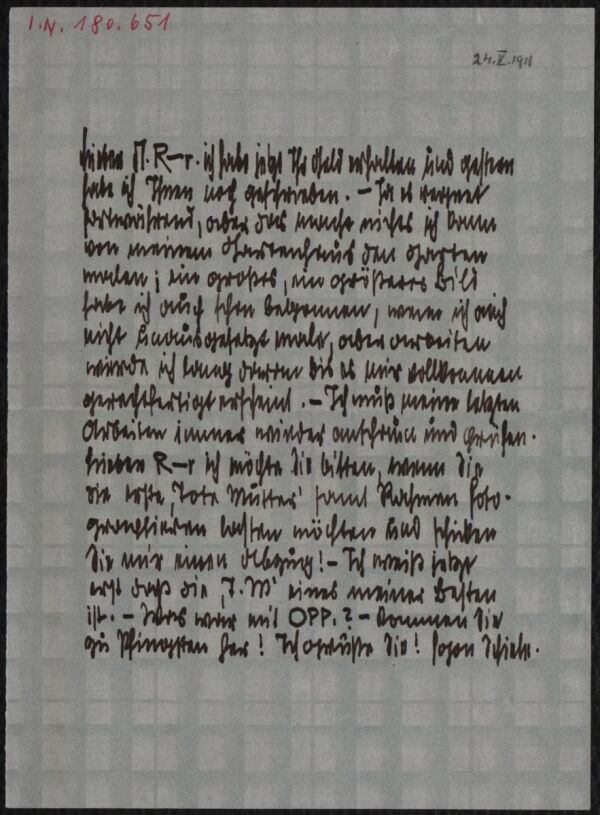 I.N. 180.651
24.V.1911
Lieber M. R–r. ich habe jetzt Ihr Geld erhalten und gestern
habe ich Ihnen noch geschrieben. – Ja es regnet
fortwährend, aber das macht nichts ich kann
von meinem Gartenhaus den Garten
malen; ein großes, ein größeres Bild
habe ich auch schon begonnen, wenn ich auch
nicht unausgesetzt male, aber arbeiten
würde ich lang daran bis es mir vollkommen
gerechtfertigt erscheint. – Ich muß meine letzten
Arbeiten immer wieder anschaun und prüfen.
Lieber R–r ich möchte Sie bitten, wenn Sie
die erste, Tote Mutter' samt Rahmen foto-
grafieren lassen möchten und schicken
Sie mir einen Abzug! – Ich weiß jetzt
erst daß die ,T. M' eines meiner Besten
ist. – Was war mit OPP.? – kommen Sie
zu Pfingsten her! Ich grüße Sie! Egon Schiele.